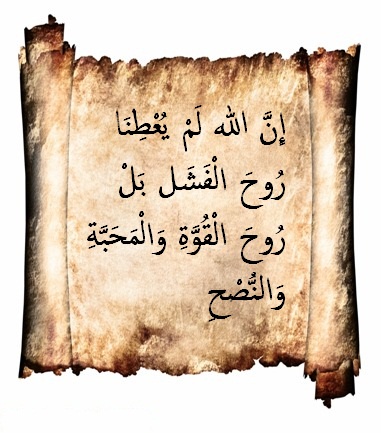 إِنَّ الله لَمْ يُعْطِنَا
رُوحَ الْفَشَل بَلْ
رُوحَ الْقُوَّةِ وَالْمَحَبَّةِ
وَالنُّصْحِ